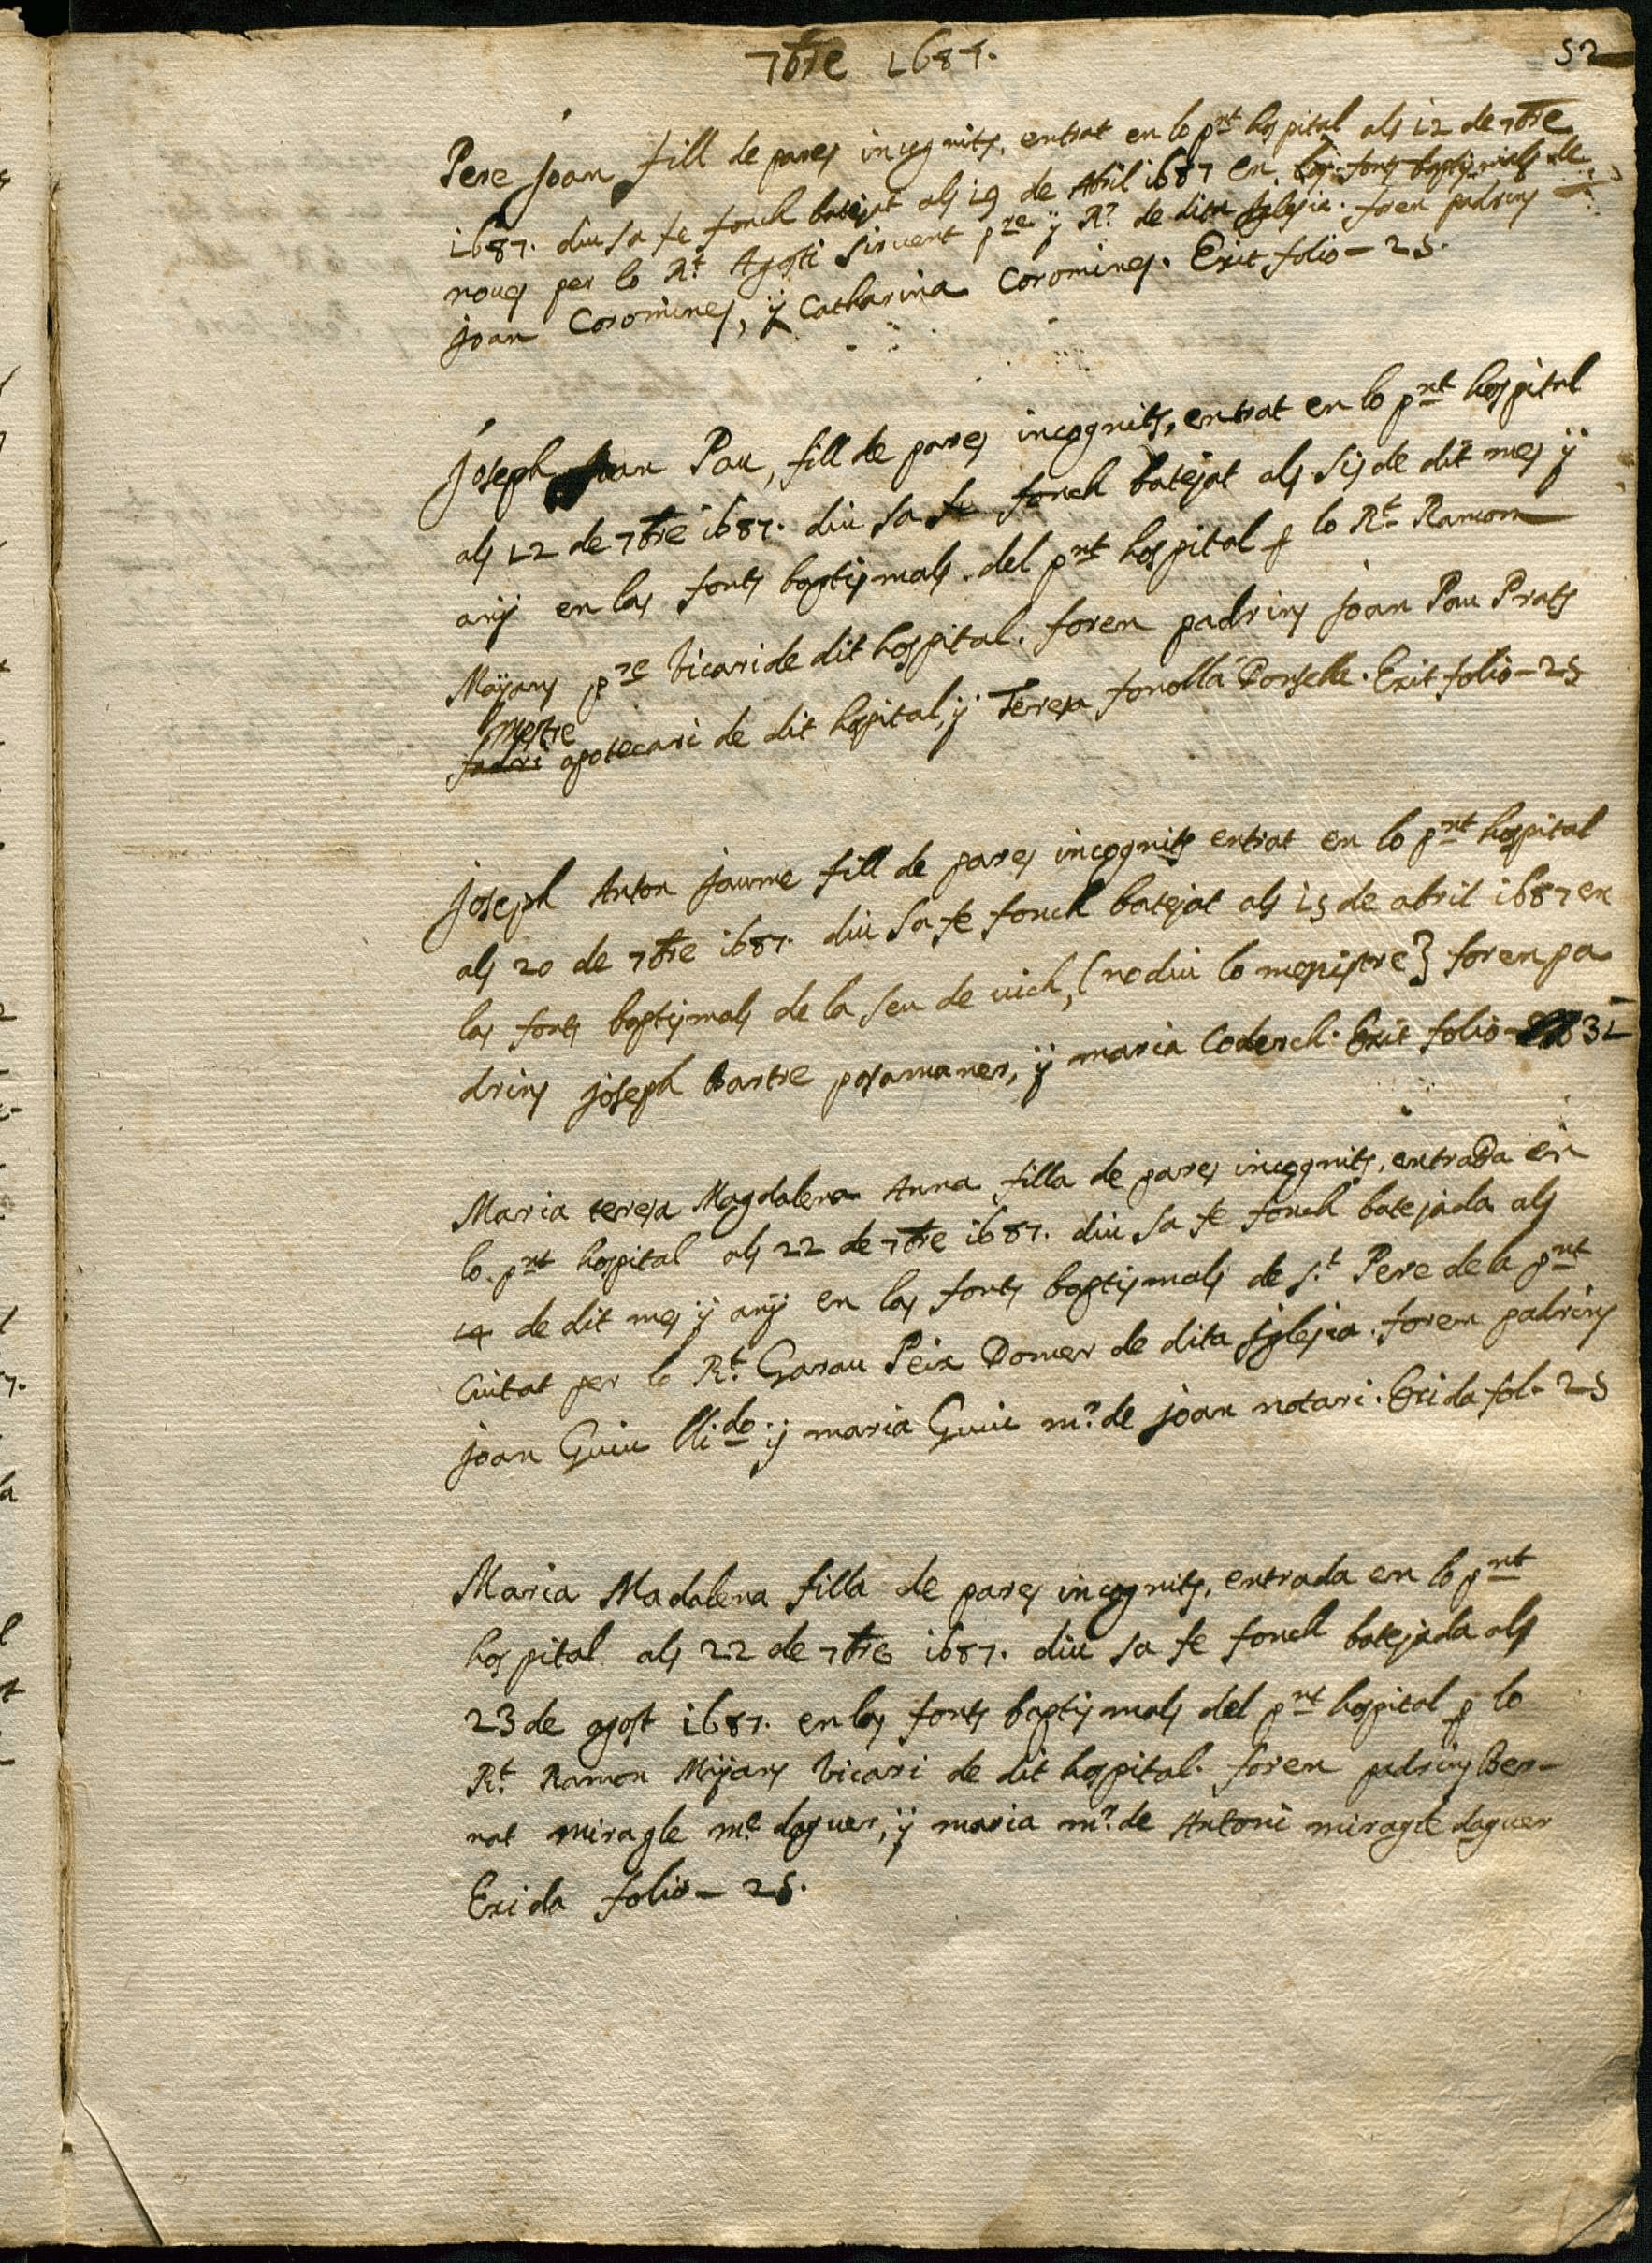 7bre 1687.
52
Pere Joan fill de pares incognits, entrat en lo pnt hospital als 12 de 7bre
1687. diu sa fe fonch batejat als 19 de Abril 1687 en las fonts baptismals de
noves per lo Rt. Agosti Sirvent pre y Rr. de dita Iglesia. foren padrins
Joan Coromines, y Catharina Coromines. Exit folio - 25.
Joseph Joan Pau, fill de pares incognits, entrat en lo pnt hospital
als 12 de 7bre 1687. diu sa fe fonch batejat als sis de dit mes y
any en las fonts baptismals del pnt hospital p lo Rt. Ramon
Mijans pre Vicari de dit hospital. foren padrins Joan Pau Prats
mestre
fadri apotecari de dit hospital, y Teresa fonolla Donsella. Exit folio - 25
Joseph Anton Jaume fill de pares incognits entrat en lo pnt hospital
als 20 de 7bre 1687. diu sa fe fonch batejat als 15 de abril 1687 en
las fonts baptismals de la seu de vich, (no diu lo menistre) foren pa
drins Joseph bartre posamaner, y maria Coderch. Exit folio - 31
Maria teresa Magdalena Anna filla de pares incognits, entrada en
lo pnt hospital als 22 de 7bre 1687. diu sa fe fonch batejada als
14 de dit mes y any en las fonts baptismals de St. Pere de la pnt
Ciutat per lo Rt. Garau Peix Domer de dita Iglesia. foren padrins
Joan Guiu llido y maria Guiu mr. de Joan notari. Exida fol. 25
Maria Madalena filla de pares incognits, entrada en lo pnt
hospital als 22 de 7bre 1687. diu sa fe fonch batejada als
23 de agost 1687. en las fonts baptismals del pnt hospital p lo
Rt. Ramon Mijans Vicari de dit hospital. foren padrins Ber-
nat miragle me. daguer, y maria mr. de Antoni miragle daguer
Exida folio - 25.